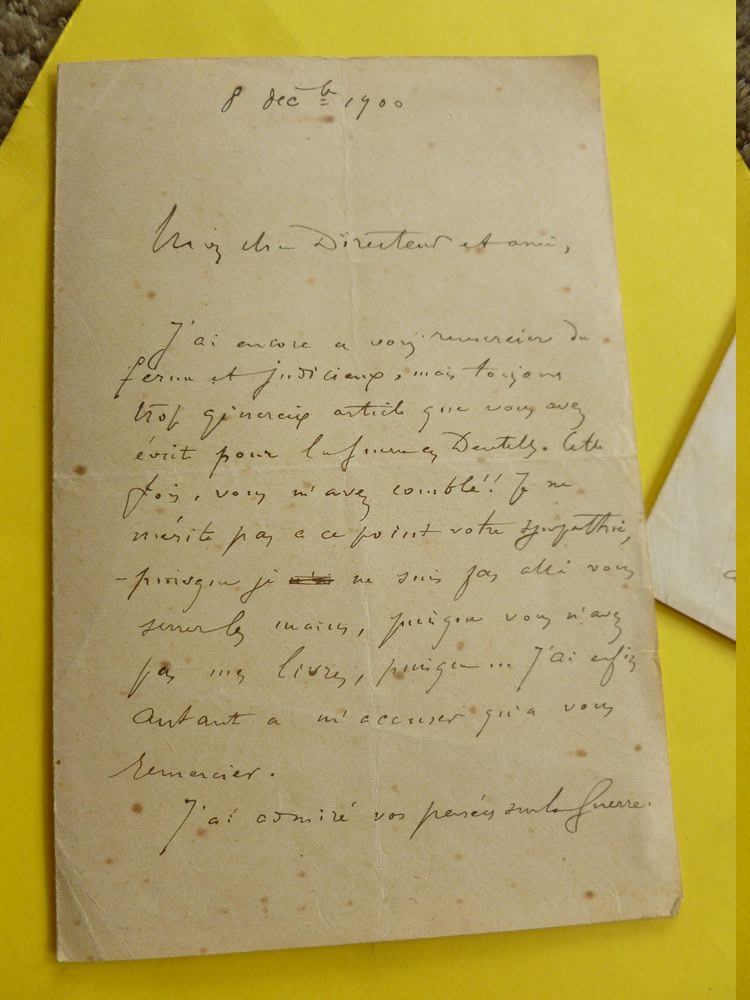 8 décb 1900
Mon cher Directeur et ami,
J'ai encore a vous remercier du
ferme et judicieux, mais toujours
trop généreux article que vous avez
écrit pour la Guerre en Dentelles. Cette
fois, vous m'avez comblé!! Je ne
mérite pas a ce point votre sympathie,
- puisque je ne suis pas allé vous
serrer les mains, puisque vous n'avez
pas mes livres, puisque... J'ai enfin
autant a m'accuser qu'a vous
remercier.
J'ai admiré vos pensées sur la Guerre.